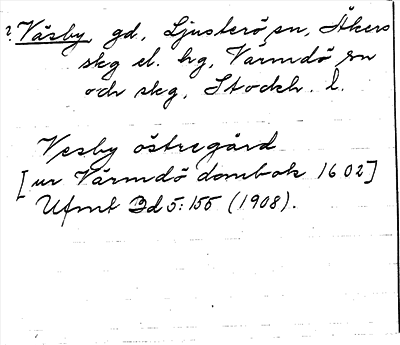 ?. Väsby gd, Ljusterö sn, Åkers
skg el. hg, Värmdö sn
och skg, Stockh. l.
Vesby östregård
[ur Värmdö dombok 1602]
Ufmt Bd 5:155 (1908).